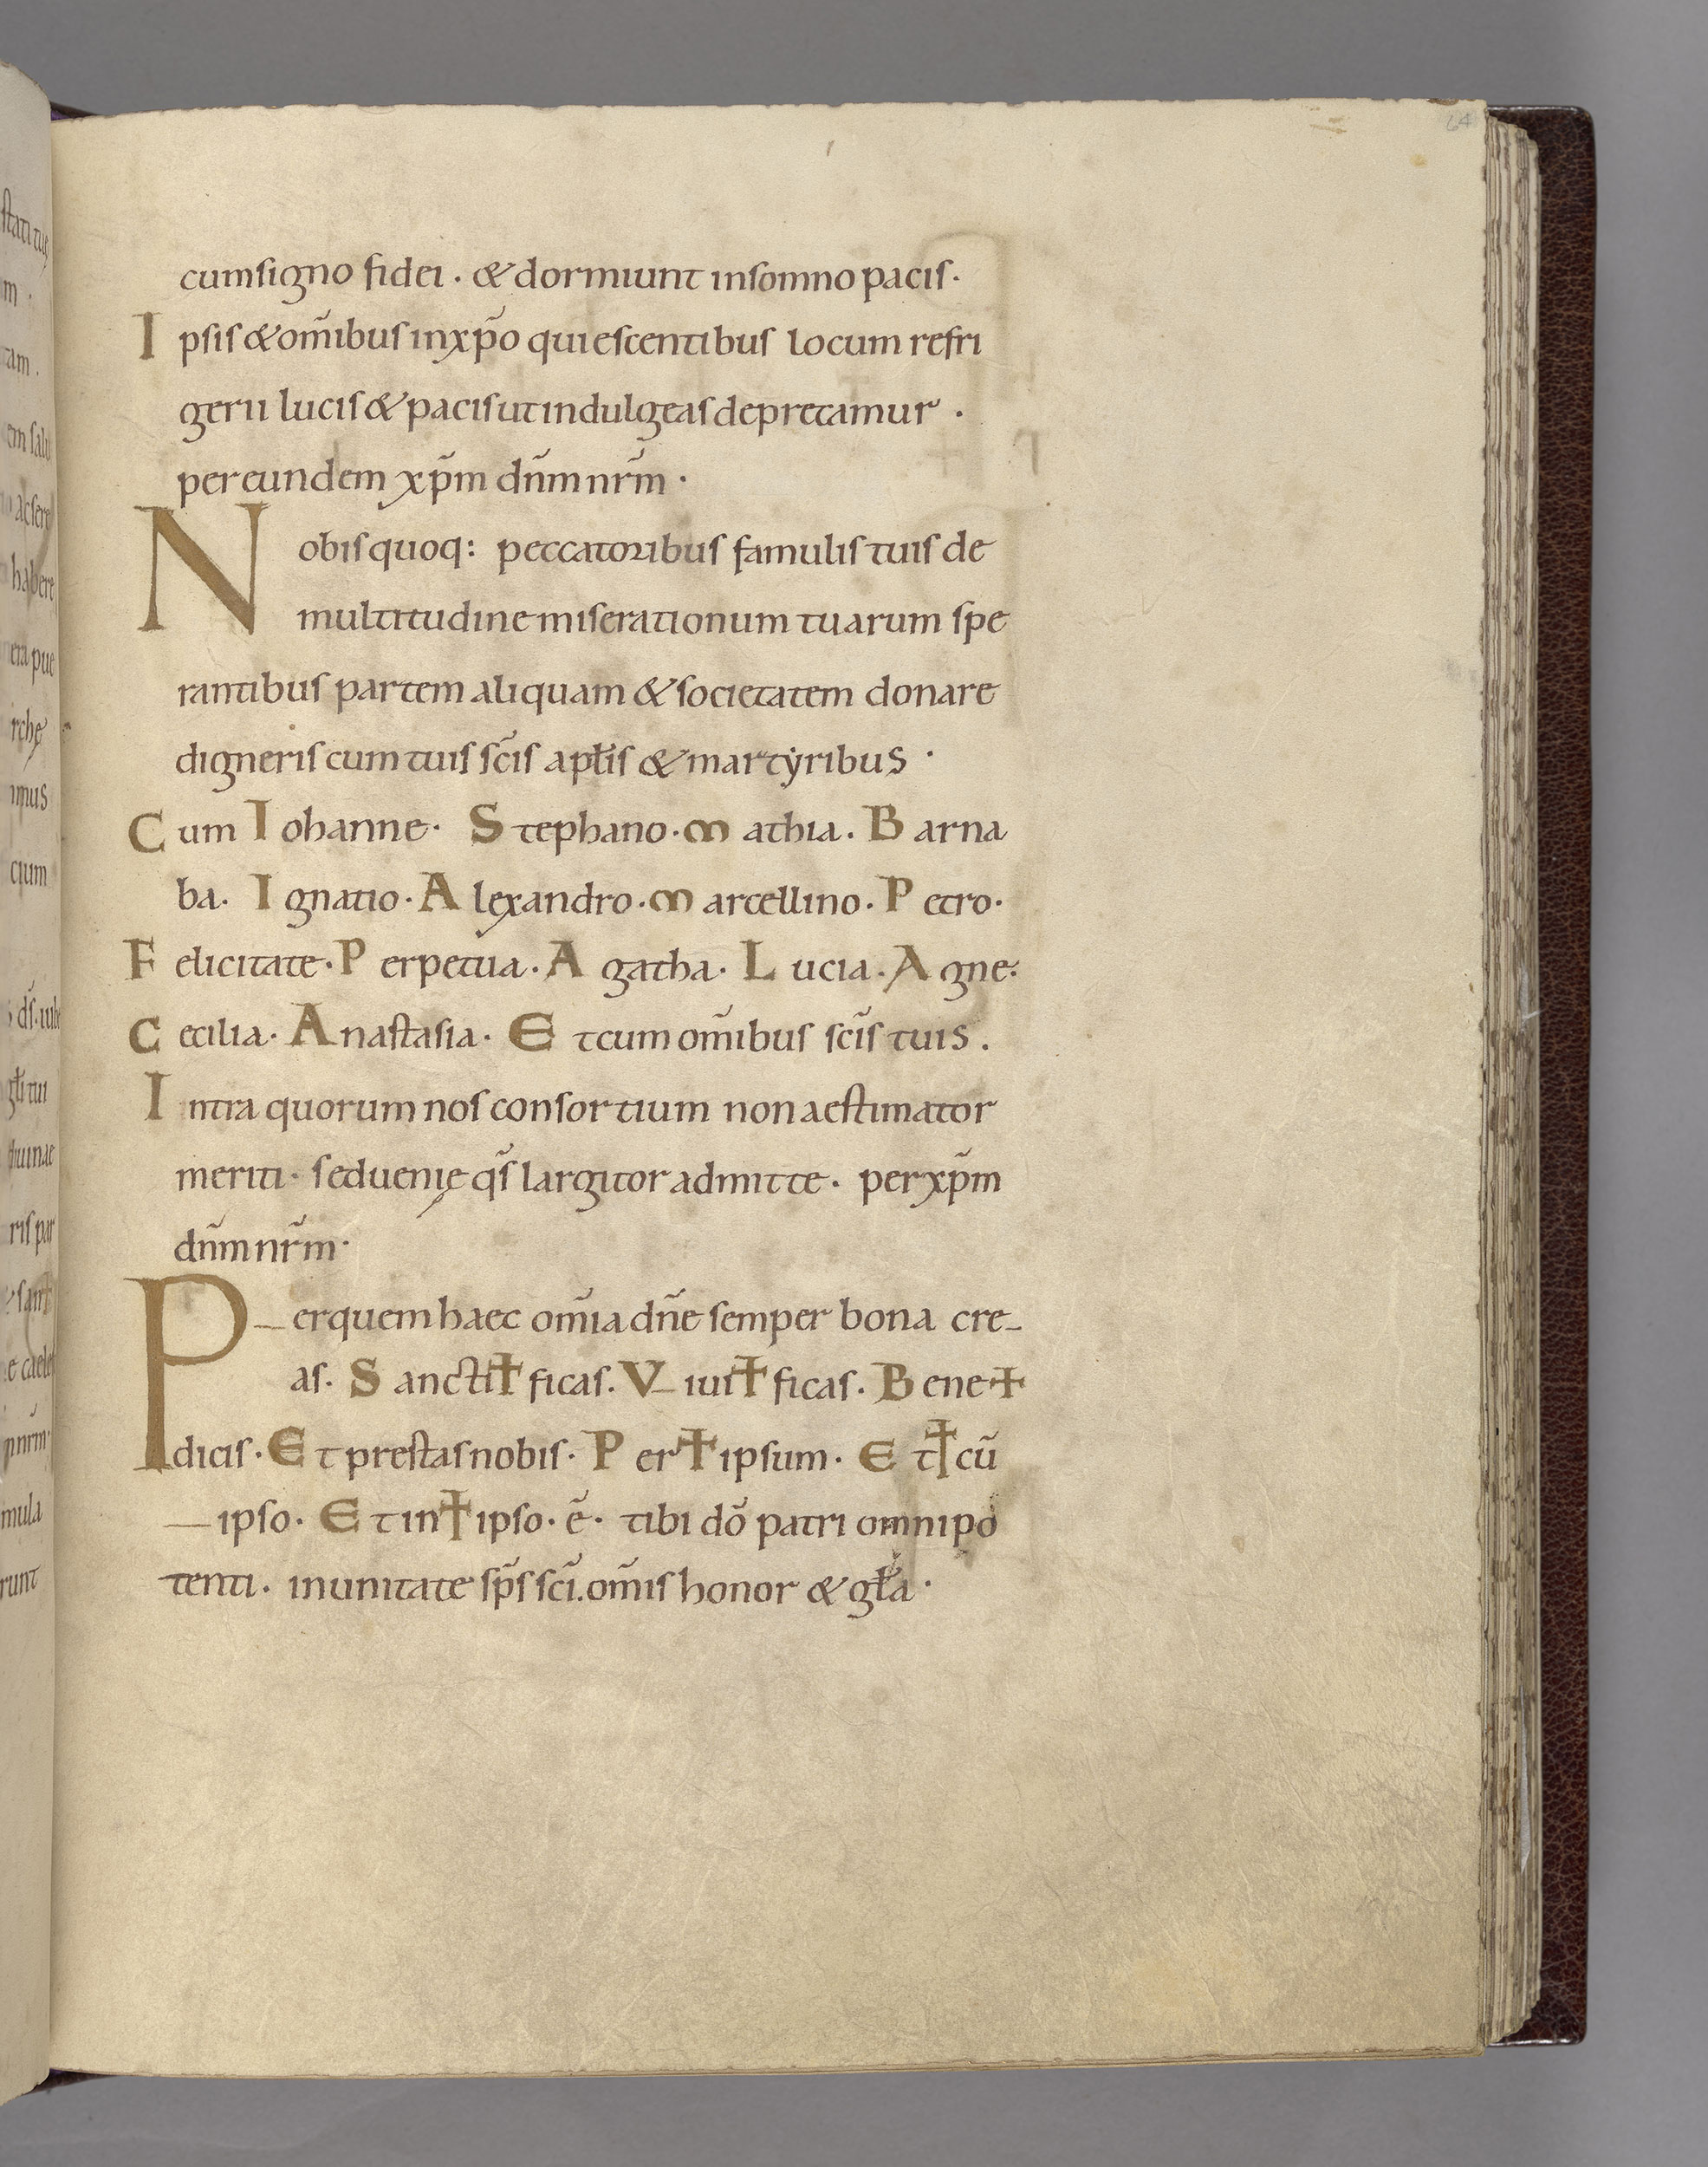 64
cumsigno fidei · & dormiunt insomno pacis·
I psis & om̄ibus inxp̄o quiescentibus locum refri
gerii lucis & pacis ut indulgeas deprecamur ·
per eundem xp̄m dn̄m nr̄m ·
N obis quoq: peccatoribus famulis tuis de
multitudine miserationum tuarum spe
rantibus partem aliquam & societatem donare
digneris cum tuis sc̄is apƚis & martyribus ·
C um I ohanne· S tephano· M athia. B arna
ba. I gnatio· A lexandro· M arcellino· P etro·
F elicitate· P erpetua· A gatha· L ucia· A gne·
C ecilia· A nastasia· E t cum om̄ibus sc̄is tuis.
I ntra quorum nos consortium non aestimator
meriti· sed uenię qs̄ largitor admitte· per xp̄m
dn̄m nr̄m·
P er quem haec om̄ia dn̄e semper bona cre-
as. S ancti ✝ ficas. V iui ✝ ficas. B ene ✝
dicis. E t prestas nobis· P er ✝ ipsum. E t ✝ cū
ipso. E t in ✝ ipso· ē· tibi dō patri omnipo
tenti. in unitate sp̄s sc̄i. om̄is honor & gƚa·